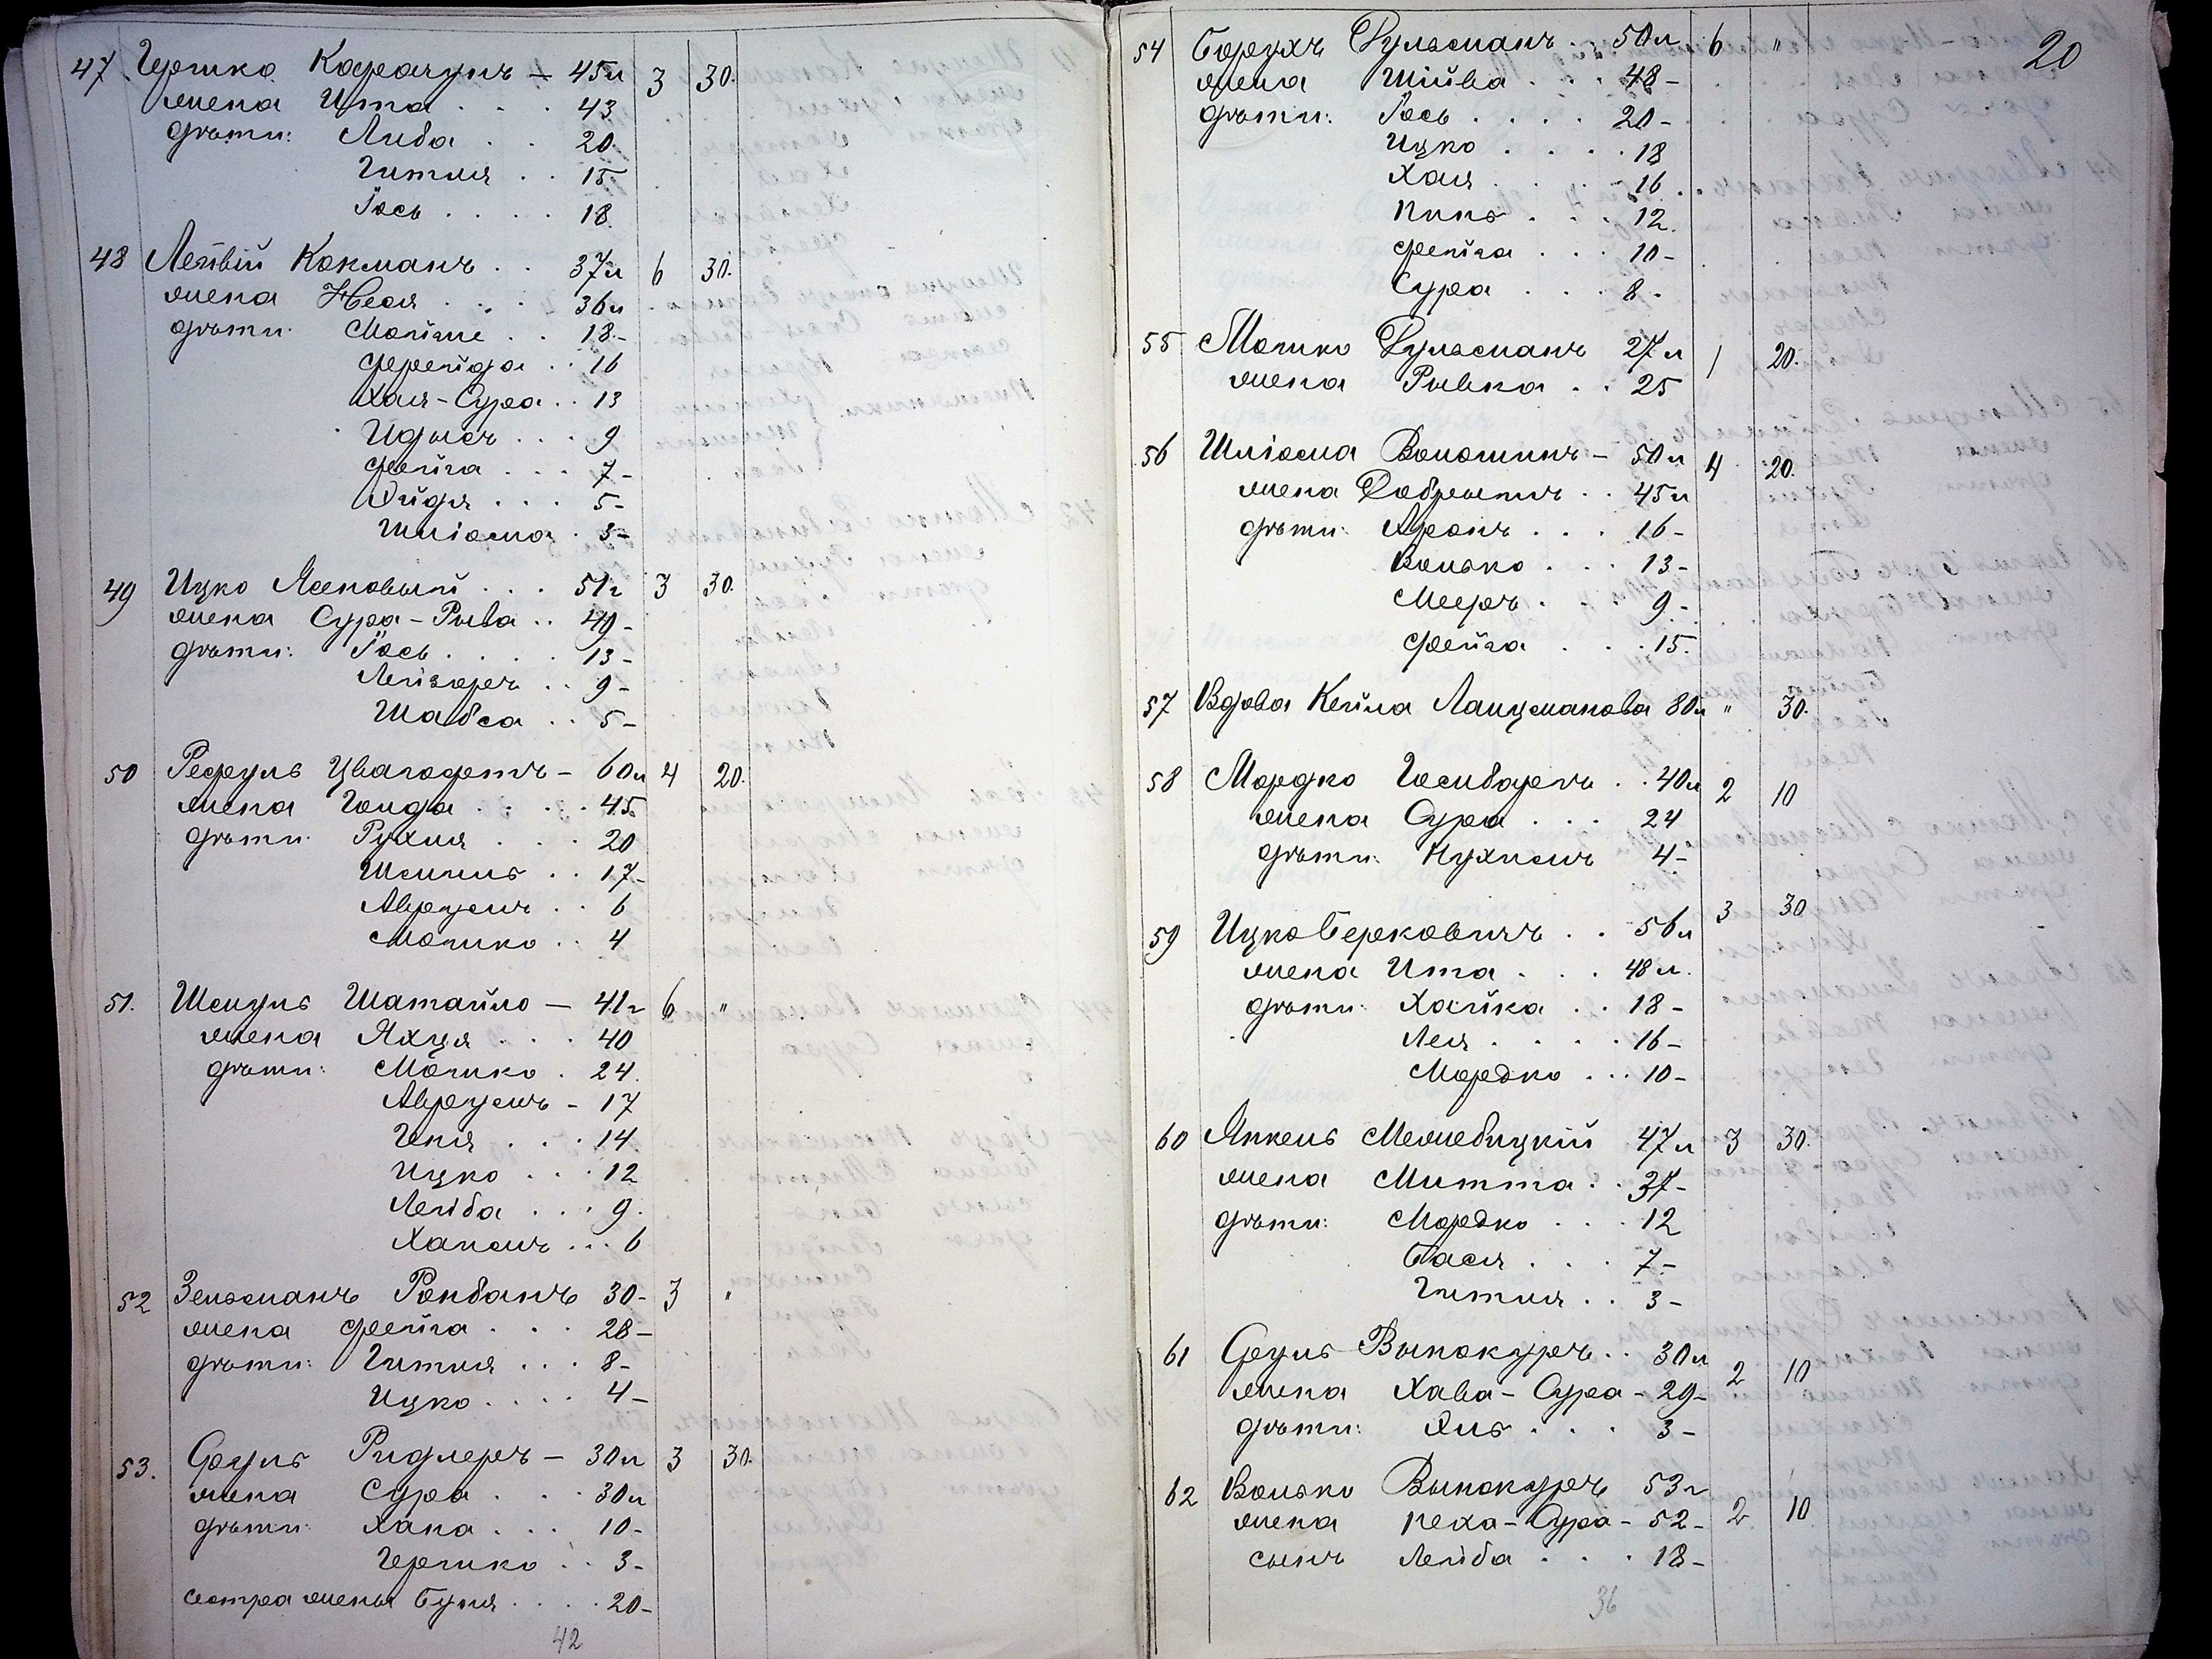 47 Гершко Карачунъ — 45 л 3 30.
жена Ита . . . 43
дѣти: Либа . . 20
Гитля . . 15
Іось . . . . 18.
48 Лейвій Кокманъ . . 37 л 6 30.
жена Неся . . . 36 л
дѣти: Мойше . . 18.-
Фрейда . . 16
Хая-Сура . . 13
Идысъ . . . 9
Фейга . . . 7-
Хайдя . . . 5-
Шліома . 3-
49 Ицко Ясеновый . . . 51 г 3 30.
жена Сура-Рыва . . 49-
дѣти: Іось . . . . 13-
Лейзоръ . . 9-
Шабса . . 5-
50 Рефуль — 60 л 4 20.
жена Голда . . . . 45.
дѣти: Рухля . . . 20
Шмиль . . 17-
Аврумъ . . 6
Мошко . . 4
51. Шмуль Шатайло — 41 г 6 "
жена Яхця . . . 40
дѣти: Мошко . 24.
Аврумъ - 17
Геня . . . 14
Ицко . . . 12
Лейба . . . 9.
Хаимъ . . . 6
52 Зельманъ Ройбанъ 30- 3 "
жена Фейга . . . 28-
дѣти: Гитля . . . 8-
Ицко . . . . 4-
53. Сруль Ридлеръ — 30 л 3 30.
жена Сура . . . 30 л
дѣти: Хана . . . 10-
Гершко . . 3-
сестра жены Буня . . . . 20-
42
20
54 Борухъ Гульманъ . . 50 л 6 "
жена Шийва . . . 48-
дѣти: Іось . . . . 20-
Ицко . . . . 18
Хая . . . . 16
. . . 12.
Фейга . . . 10-
Сура . . . 8-
55 Мошко Гульманъ 27 л 1 20.
жена Рывка . . 25
56 Шліома Волошинъ — 50 л 4 20.
жена Добрышъ . . 45 л
дѣти: Аронъ . . . 16-
Волько . . . 13-
Мееръ . . . 9-
Фейга . . . 15.
57 Вдова Кейла Ланцманова 80 л " 30.
58 Мордко . . 40 л 2 10
жена Сура . . . 24
дѣти: Нухимъ 4-
59 Ицко Берковичъ . . 56 л 3 30
жена Ита . . . 48 л.
дѣти: Хайка . . 18-
Лея . . . . 16-
Мордко . . . 10-
60 Янкель Межебицкій 47 л 3 30.
жена Митта . . 37-
дѣти: Мордко . . . 12
Бася . . . 7-
Гитля . . 3-
61 Сруль Винокуръ . . 30 л 2 10
жена Хава-Сура - 29-
дѣти: Хиль . . . 3-
62 Волько Винокуръ 53 г 2 10
жена Неха-Сура - 52-
сынъ Лейба . . . 18-
36